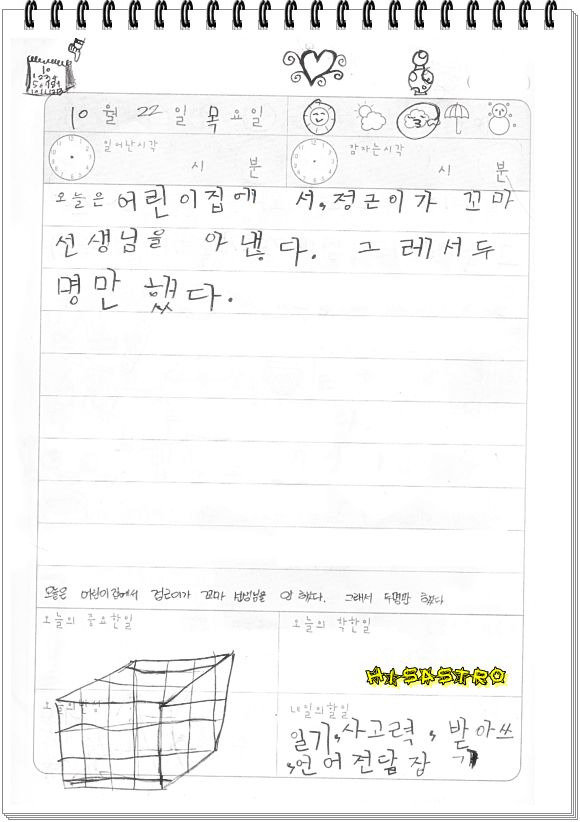 10
1234
10월 22일 목요일
일어난시각
시 분
잠자는시각
시 분
오늘은 어린이집에 서, 정근이가 꼬마
선생님을 아 냈다. 그 레서두
명만 했다.
오늘은 어린이집에서 정근이가 꼬마 선생님을 안 했다. 그래서 두명만 했다
오늘의 중요한일
오늘의 착한일
HI-SASTRO
오늘의반성
내일의할일
일기, 사고력, 받아쓰
기, 언어전달장